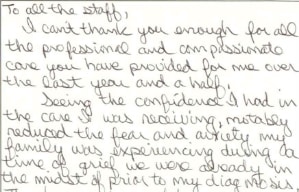 To all the staff,
I can't thank you enough for all
the professional and compassionate
care you have provided for me over
the last year and a half.
Seeing the confidence I had in
the care I was receiving, notably
reduced the fear and anxiety my
family was experiencing during a
time of grief we were already in
the midst of prior to my diagnosis.